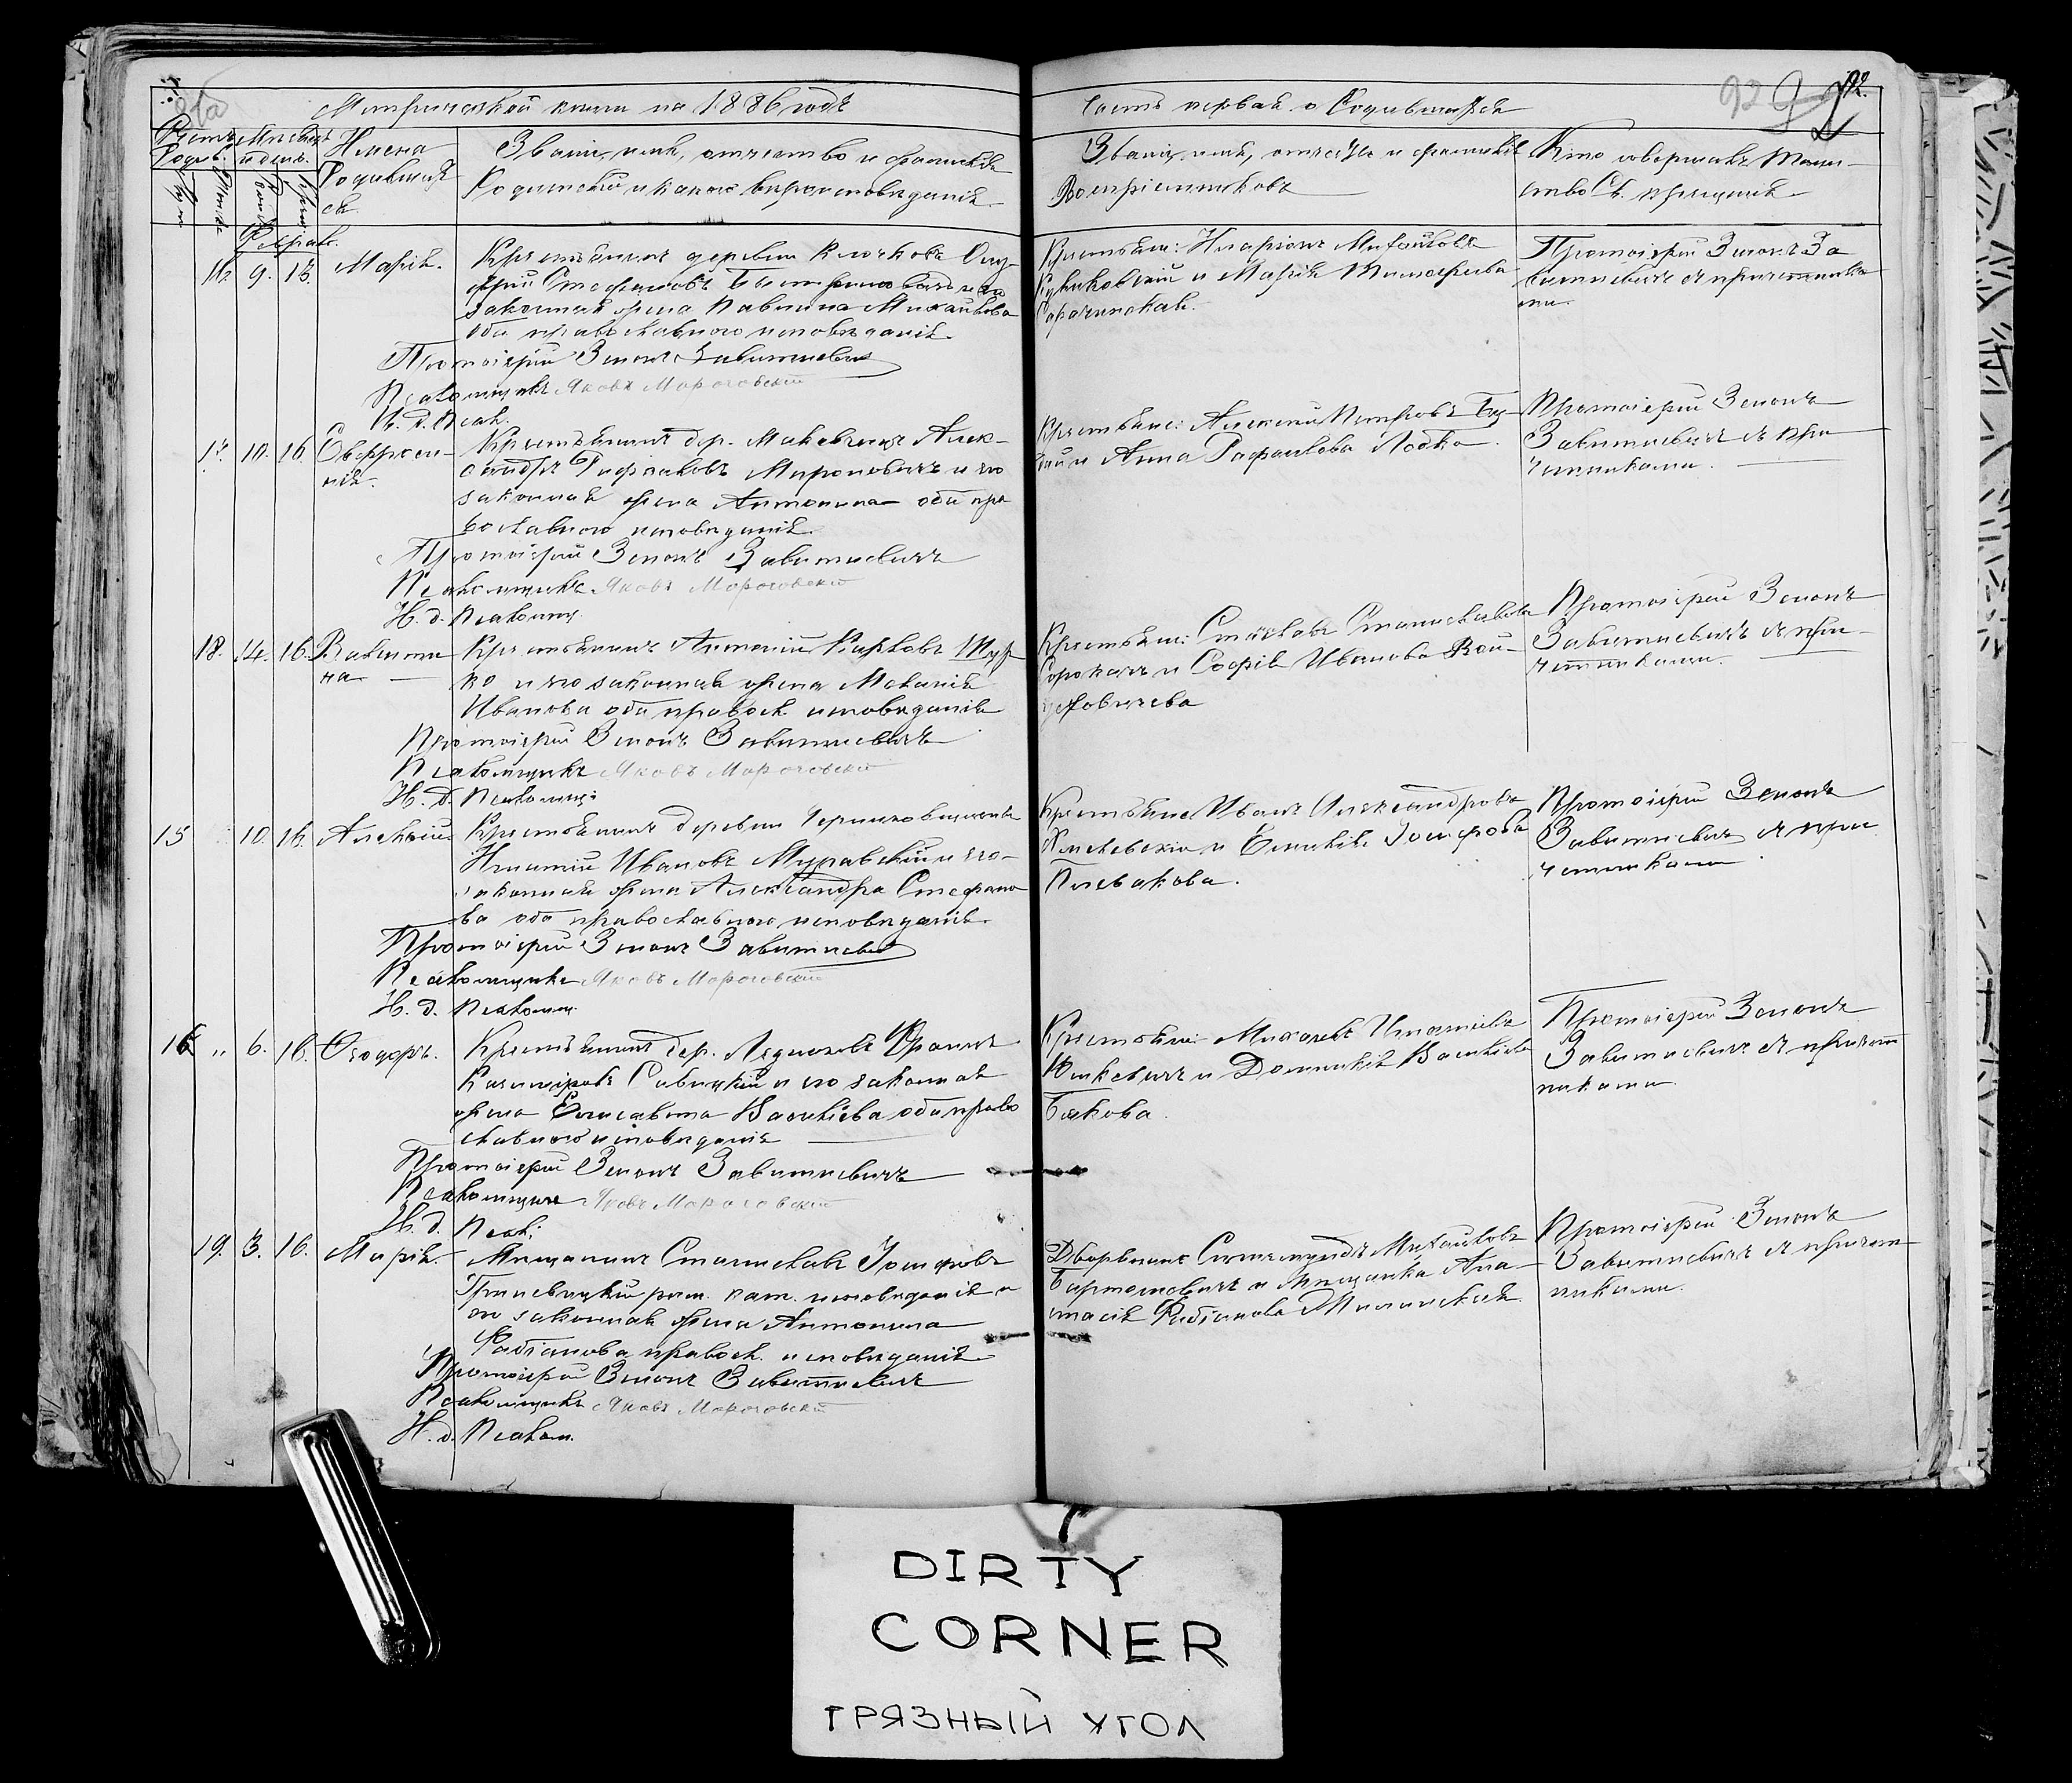 Метрической книги на 1886 годъ
Часть первая о Родившихся
92
Имена
Родивших
ся.
Званіе, имя, отчество и фамилія
Родителей и какого вѣроисповѣданія.
Званіе, имя, отчество и фамилія
Воспріемниковъ
Кто совершалъ Таин-
ство Св. крещенія
Феврал.
16. 9. 13. Марія.
Крестьянинъ деревни Клочковъ
Стефановъ
законная жена Павлина Михайлова
оба православнаго исповѣданія.
Протоіерей Зенонъ Завитневичъ
Псаломщикъ Яковъ Мороговскій
И. д. Псал.
Крестьяне: Иларіонъ Михайловъ
и Марія Тимофеева
Протоіерей Зенонъ За
витневичъ съ причетника
ми.
17. 10. 16. Евфроси-
нія.
Крестьянинъ дер. Алек-
сандръ Мироновичъ и его
законная жена Антонина оба пра
вославнаго исповѣданія.
Протоіерей Зенонъ Завитневичъ
Псаломщикъ Яковъ Мороговскій
И. д. Псаломщ.
Крестьяне: Алексей Петровъ
и Анна Рафаилова Лобко.
Протоіерей Зенонъ
Завитневичъ съ при
четниками.
18. 14. 16. Валенти
на
Крестьянинъ Антоній Карловъ
ко и его законная жена Меланія
Иванова оба правосл. исповѣданія
Протоіерей Зенонъ Завитневичъ
Псаломщикъ Яковъ Мороговскій
И. д. Псаломщ.
Крестьяне: Станиславовъ
и Софія Иванова Вой-
Протоіерей Зенонъ
Завитневичъ съ при-
четниками.
15 10. 16. Алексій.
Крестьянинъ деревни
Игнатій Ивановъ Муравскій и его
законная жена Александра Стефано
ва оба православнаго исповѣданія.
Протоіерей Зенонъ Завитневичъ
Псаломщикъ Яковъ Мороговскій
И. д. Псаломщ.
Крестьяне Иванъ Александровъ
и Емилія Іосифова
Плевакова.
Протоіерей Зенонъ
Завитневичъ съ при
четниками
16 „ 6. 16. Ѳеодоръ.
Крестьянинъ дер. Францъ
Казиміровъ Савицкій и его законная
жена Елисавета Василіева оба право
славнаго исповѣданія
Протоіерей Зенонъ Завитневичъ
Псаломщикъ Яковъ Мороговскій
И. д. Псал.
Крестьяне: Михаилъ Игнатіевъ
Юшкевичъ и Доминикія Василіева
Быкова.
Протоіерей Зенонъ
Завитневичъ съ причет
никами.
19. 3. 16. Марія.
Мѣщанинъ Станиславъ Іосифовъ
рим. кат. исповѣданія и
его законная жена Антонина
Фабіанова правосл. исповѣданія.
Протоіерей Зенонъ Завитневичъ
Псаломщикъ Яковъ Мороговскій
И. д. Псалом.
Дворянинъ Сигизмундъ Михайловъ
Бартошевичъ и Мѣщанка Ана-
стасія Фабіанова
Протоіерей Зенонъ
Завитневичъ съ причет
никами.
DIRTY
CORNER
ГРЯЗНЫЙ УГОЛ